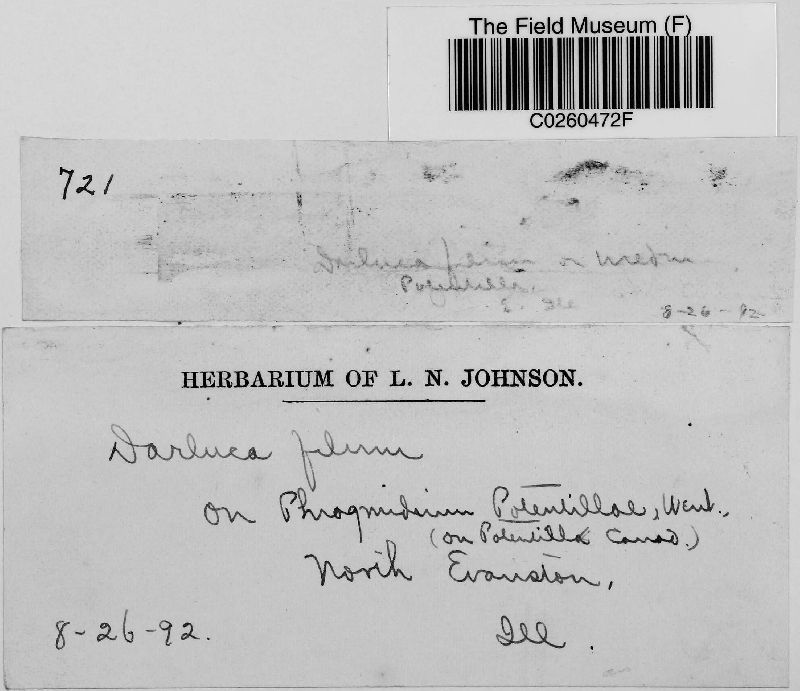 The Field Museum (F)
C0260472F
721
Darluca filum on Uredo
Potentilla.
Ill
8-26-92
HERBARIUM OF L. N. JOHNSON.
Darluca filum
on Phragmidium Potentillae, Wint.,
(on Potentilla Canad.)
North Evanston,
8-26-92.
Ill.